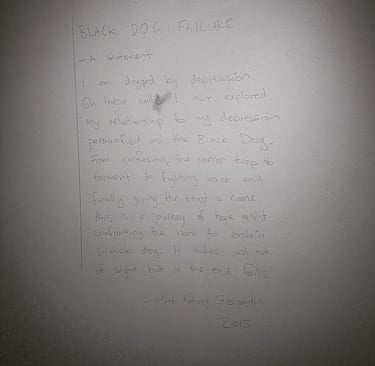 BLACK DOG: FAILURE
- A statement
I am dogged by depression.
On these walls I have explored
My relationship to my depression
personified as the Black Dog.
From confusion, the mirror trap to
torment to fighting back and
finally giving the beast a name
this is a journey of hope whilst
confronting the hard to explain
black dog. It hides just out
of sight but in the end fails
- Mark Antony
2015